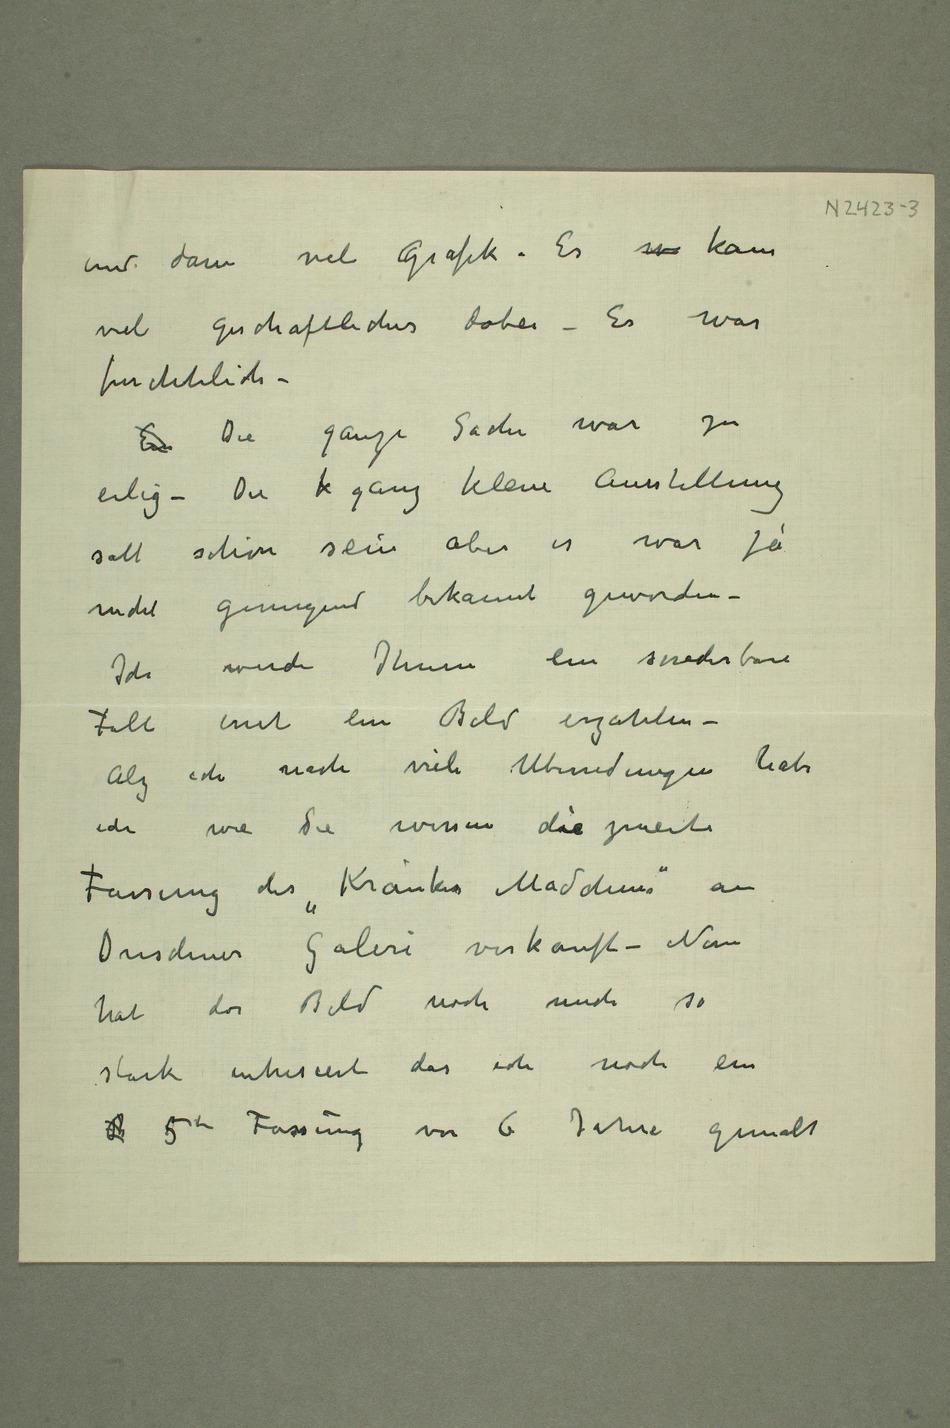 N 2423-3
und dann viel Grafik. Es kam
viel geschaftliches dabei – Es war
furchtelich –
Die ganze Sache war zu
eilig – Die ganz kleine Ausstellung
sall schön sein aber es war ja
nicht genugend bekannt geworden –
Ich werde Ihnen ein sonederbare
Fall mit ein Bild erzahlen –
Alz ich nach viele Uberredungen habe
ich wie Sie wissen die zweite
Fassung des „Kranken Mädchens" an
Dresdener Galeri verkauft – Nun
hat das Bild noch mich so
stark intresiert das ich noch ein
5te Fassung vor 6 Jahre gemalt